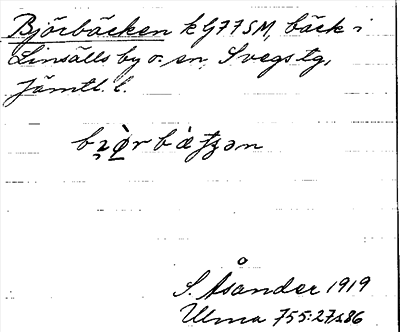 Björbäcken k G77SM, bäck i
Linsälls by o. sn, Svegs tg,
Jämtl. l.
S. Åsander 1919
Ulma 755:27 s. 86